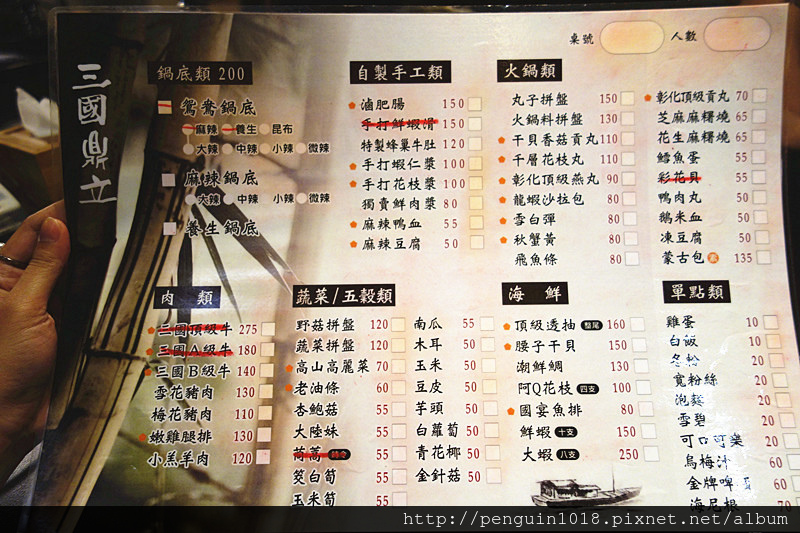 桌號 人數
三國鼎立
鍋底類 200
鴛鴦鍋底
麻辣 養生 昆布
大辣 中辣 小辣 微辣
麻辣鍋底
大辣 中辣 小辣 微辣
養生鍋底
自製手工類
滷肥腸 150
手打鮮蝦滑 150
特製蜂巢牛肚 120
手打蝦仁漿 100
手打花枝漿 100
獨賣鮮肉漿 80
麻辣鴨血 55
麻辣豆腐 50
火鍋類
丸子拼盤 150
火鍋料拼盤 130
干貝香菇貢丸 110
千層花枝丸 110
彰化頂級燕丸 90
龍蝦沙拉包 80
雪白彈 80
秋蟹黃 80
飛魚條 80
彰化頂級貢丸 70
芝麻麻糬燒 65
花生麻糬燒 65
鱈魚蛋 55
彩花貝 55
鴨肉丸 50
鵝米血 50
凍豆腐 50
蒙古包 素 135
肉類
三國頂級牛 275
三國A級牛 180
三國B級牛 140
雪花豬肉 130
梅花豬肉 110
嫩雞腿排 130
小羔羊肉 120
蔬菜/五穀類
野菇拼盤 120
蔬菜拼盤 120
高山高麗菜 70
老油條 60
杏鮑菇 55
大陸妹 55
茼蒿 時令 55
筊白筍 55
玉米筍 55
南瓜 55
木耳 50
玉米 50
豆皮 50
芋頭 50
白蘿蔔 50
青花椰 50
金針菇 50
海鮮
頂級透抽 整尾 160
腰子干貝 150
潮鮮鯛 130
阿Q花枝 四支 100
國宴魚排 80
鮮蝦 十支 80
大蝦 八支 250
單點類
雞蛋 10
白飯 10
冬粉 20
寬粉絲 20
泡麵 20
雪碧 20
可口可樂 20
烏梅汁 60
金牌啤 60
海尼根 70
http://penguin1018.pixnet.net/album